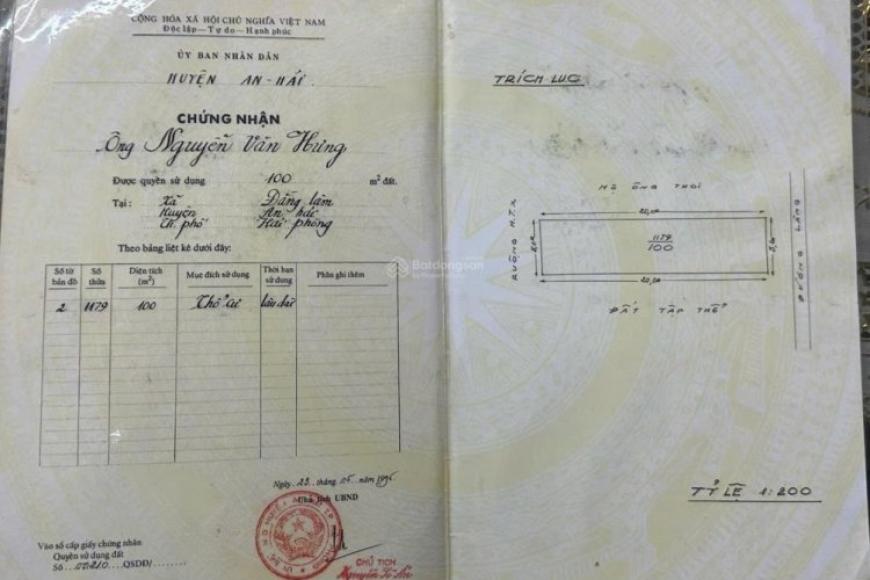 CỘNG HÒA XÃ HỘI CHỦ NGHĨA VIỆT NAM
Độc lập — Tự do — Hạnh phúc
ỦY BAN NHÂN DÂN
HUYỆN AN-HẢI
CHỨNG NHẬN
Ông Nguyễn Văn Hưng
Được quyền sử dụng 100 m² đất.
Tại : Xã Đằng lâm
Huyện An hải
Th. phố Hải phòng
Theo bảng liệt kê dưới đây:
Số tờ bản đồ Số thửa Diện tích (m²) Mục đích sử dụng Thời hạn sử dụng Phần ghi thêm
2 1179 100 Thổ cư lâu dài
Ngày 23 tháng 05 năm
UBND
CHỦ TỊCH
Vào sổ cấp giấy chứng nhận
Quyền sử dụng đất
Số QSDĐ/
TRÍCH LỤC
HỘ ÔNG THOI
RUỘNG H.T.X
1179
100
ĐƯỜNG LÀNG
ĐẤT TẬP THỂ
TỶ LỆ 1:200
Batdongsan